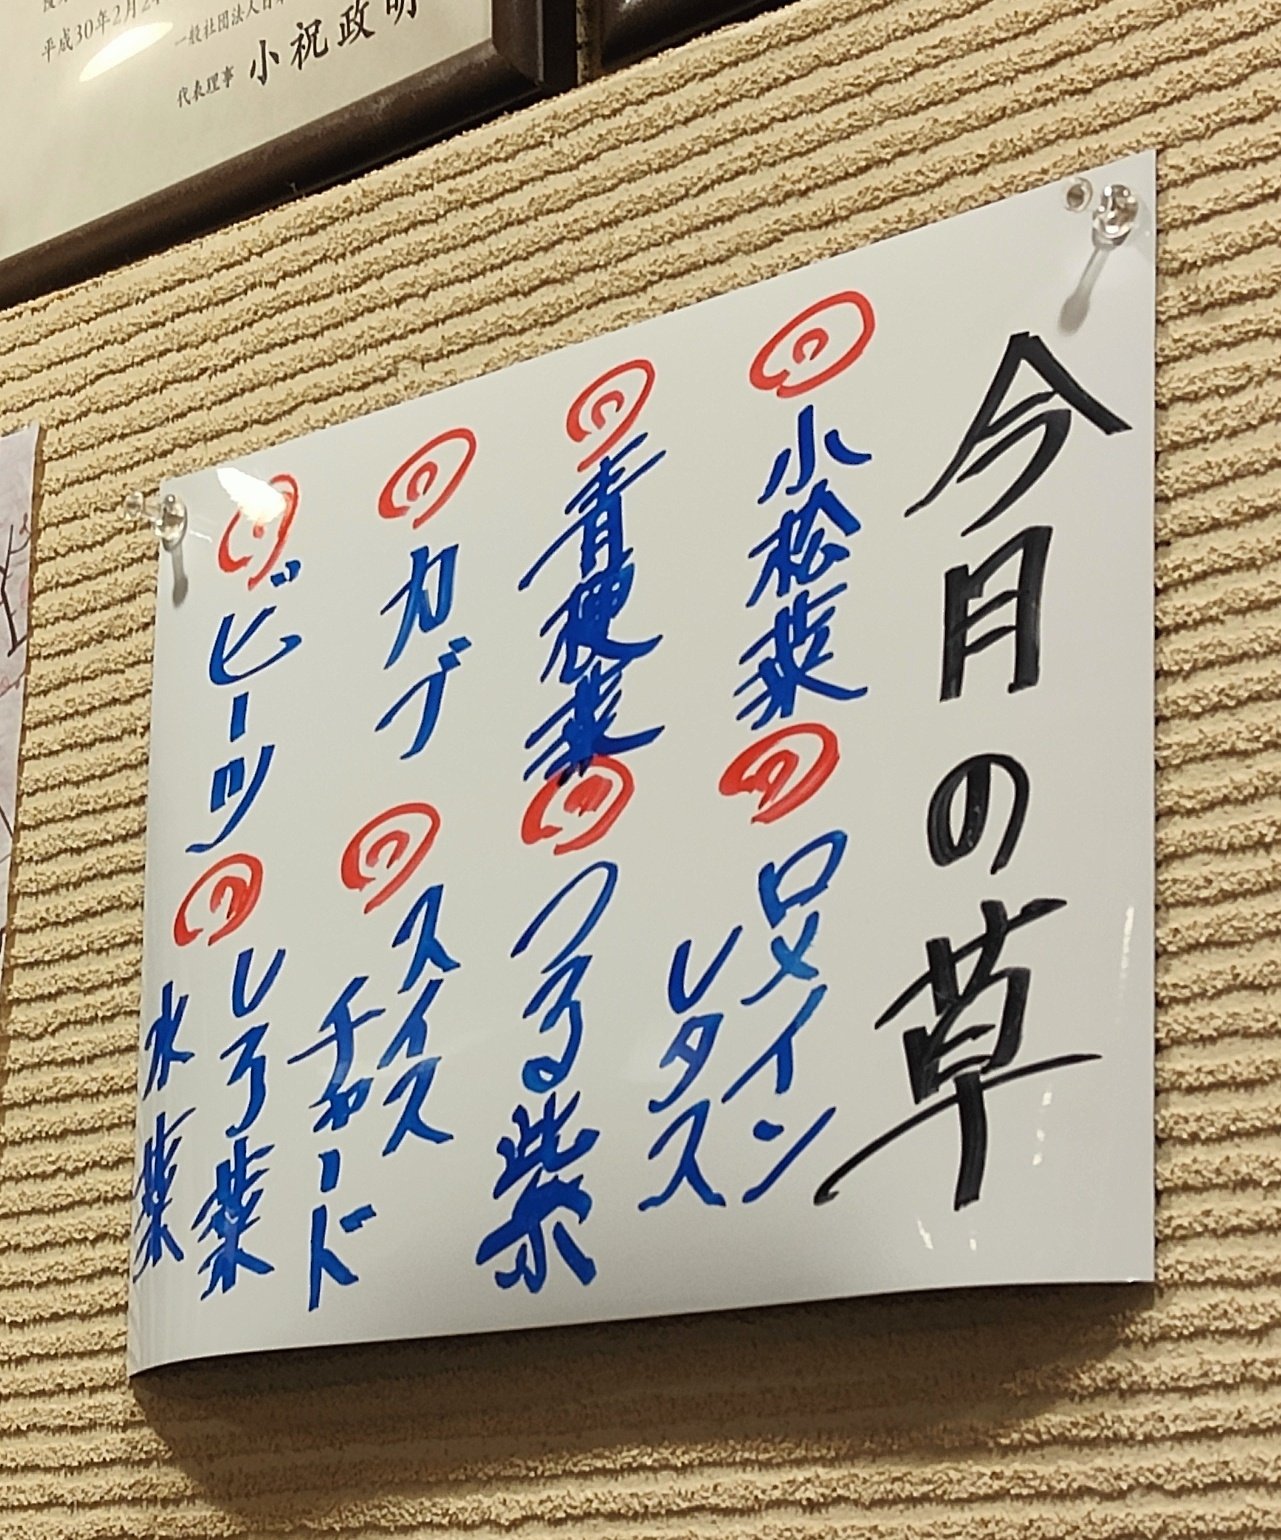 平成30年2月2
一般社団法人日本
代表理事 小祝政明
今月の草
小松菜
ロメイン
レタス
青梗菜
つる紫
カブ
スイス
チャード
ビーツ
しろ菜
水菜